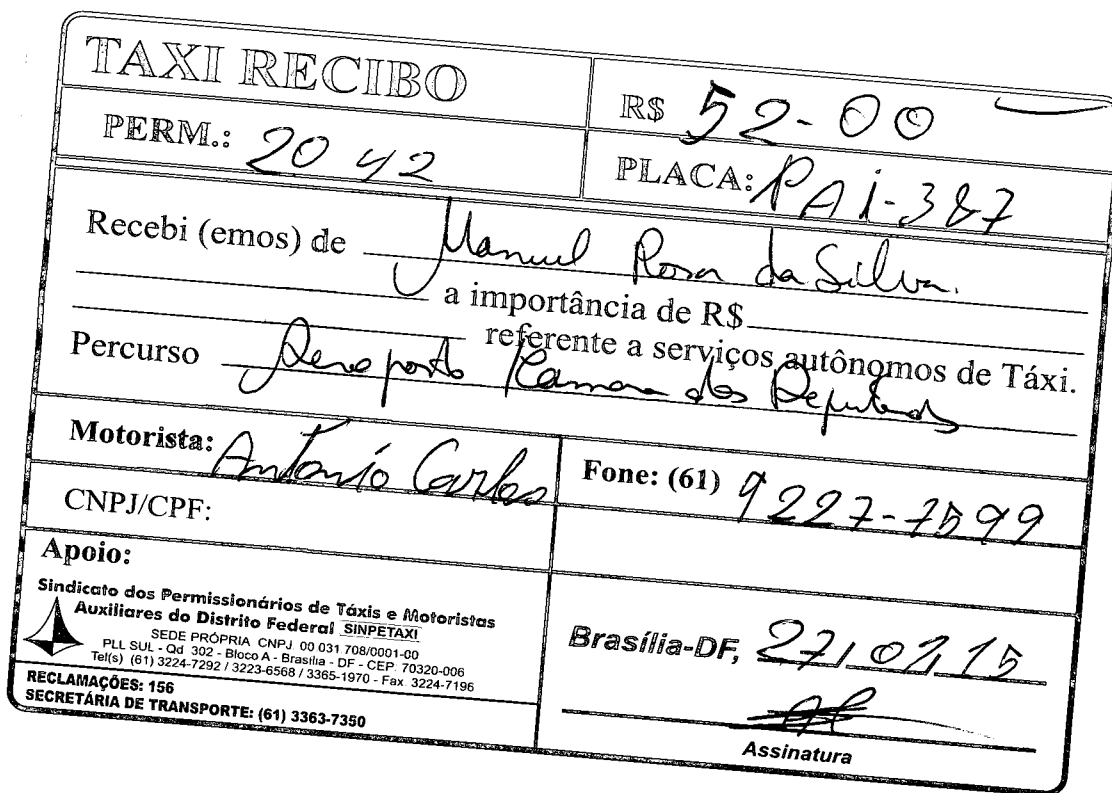 TAXI RECIBO
R$ 52-00
PERM.: 20 42
PLACA: PAI-387
Recebi (emos) de Manuel Rosa da Silva.
a importância de R$
referente a serviços autônomos de Táxi.
Percurso Aeroporto Kamara dos Deputados
Motorista: Antonio Carlos
Fone: (61) 9227-7599
CNPJ/CPF:
Apoio:
Sindicato dos Permissionários de Táxis e Motoristas
Auxiliares do Distrito Federal SINPETAXI
SEDE PRÓPRIA CNPJ 00 031 708/0001-00
PLL SUL - Qd 302 - Bloco A - Brasília - DF - CEP: 70320-006
Tel(s) (61) 3224-7292 / 3223-6568 / 3365-1970 - Fax 3224-7196
RECLAMAÇÕES: 156
SECRETÁRIA DE TRANSPORTE: (61) 3363-7350
Brasília-DF, 27/02/15
Assinatura